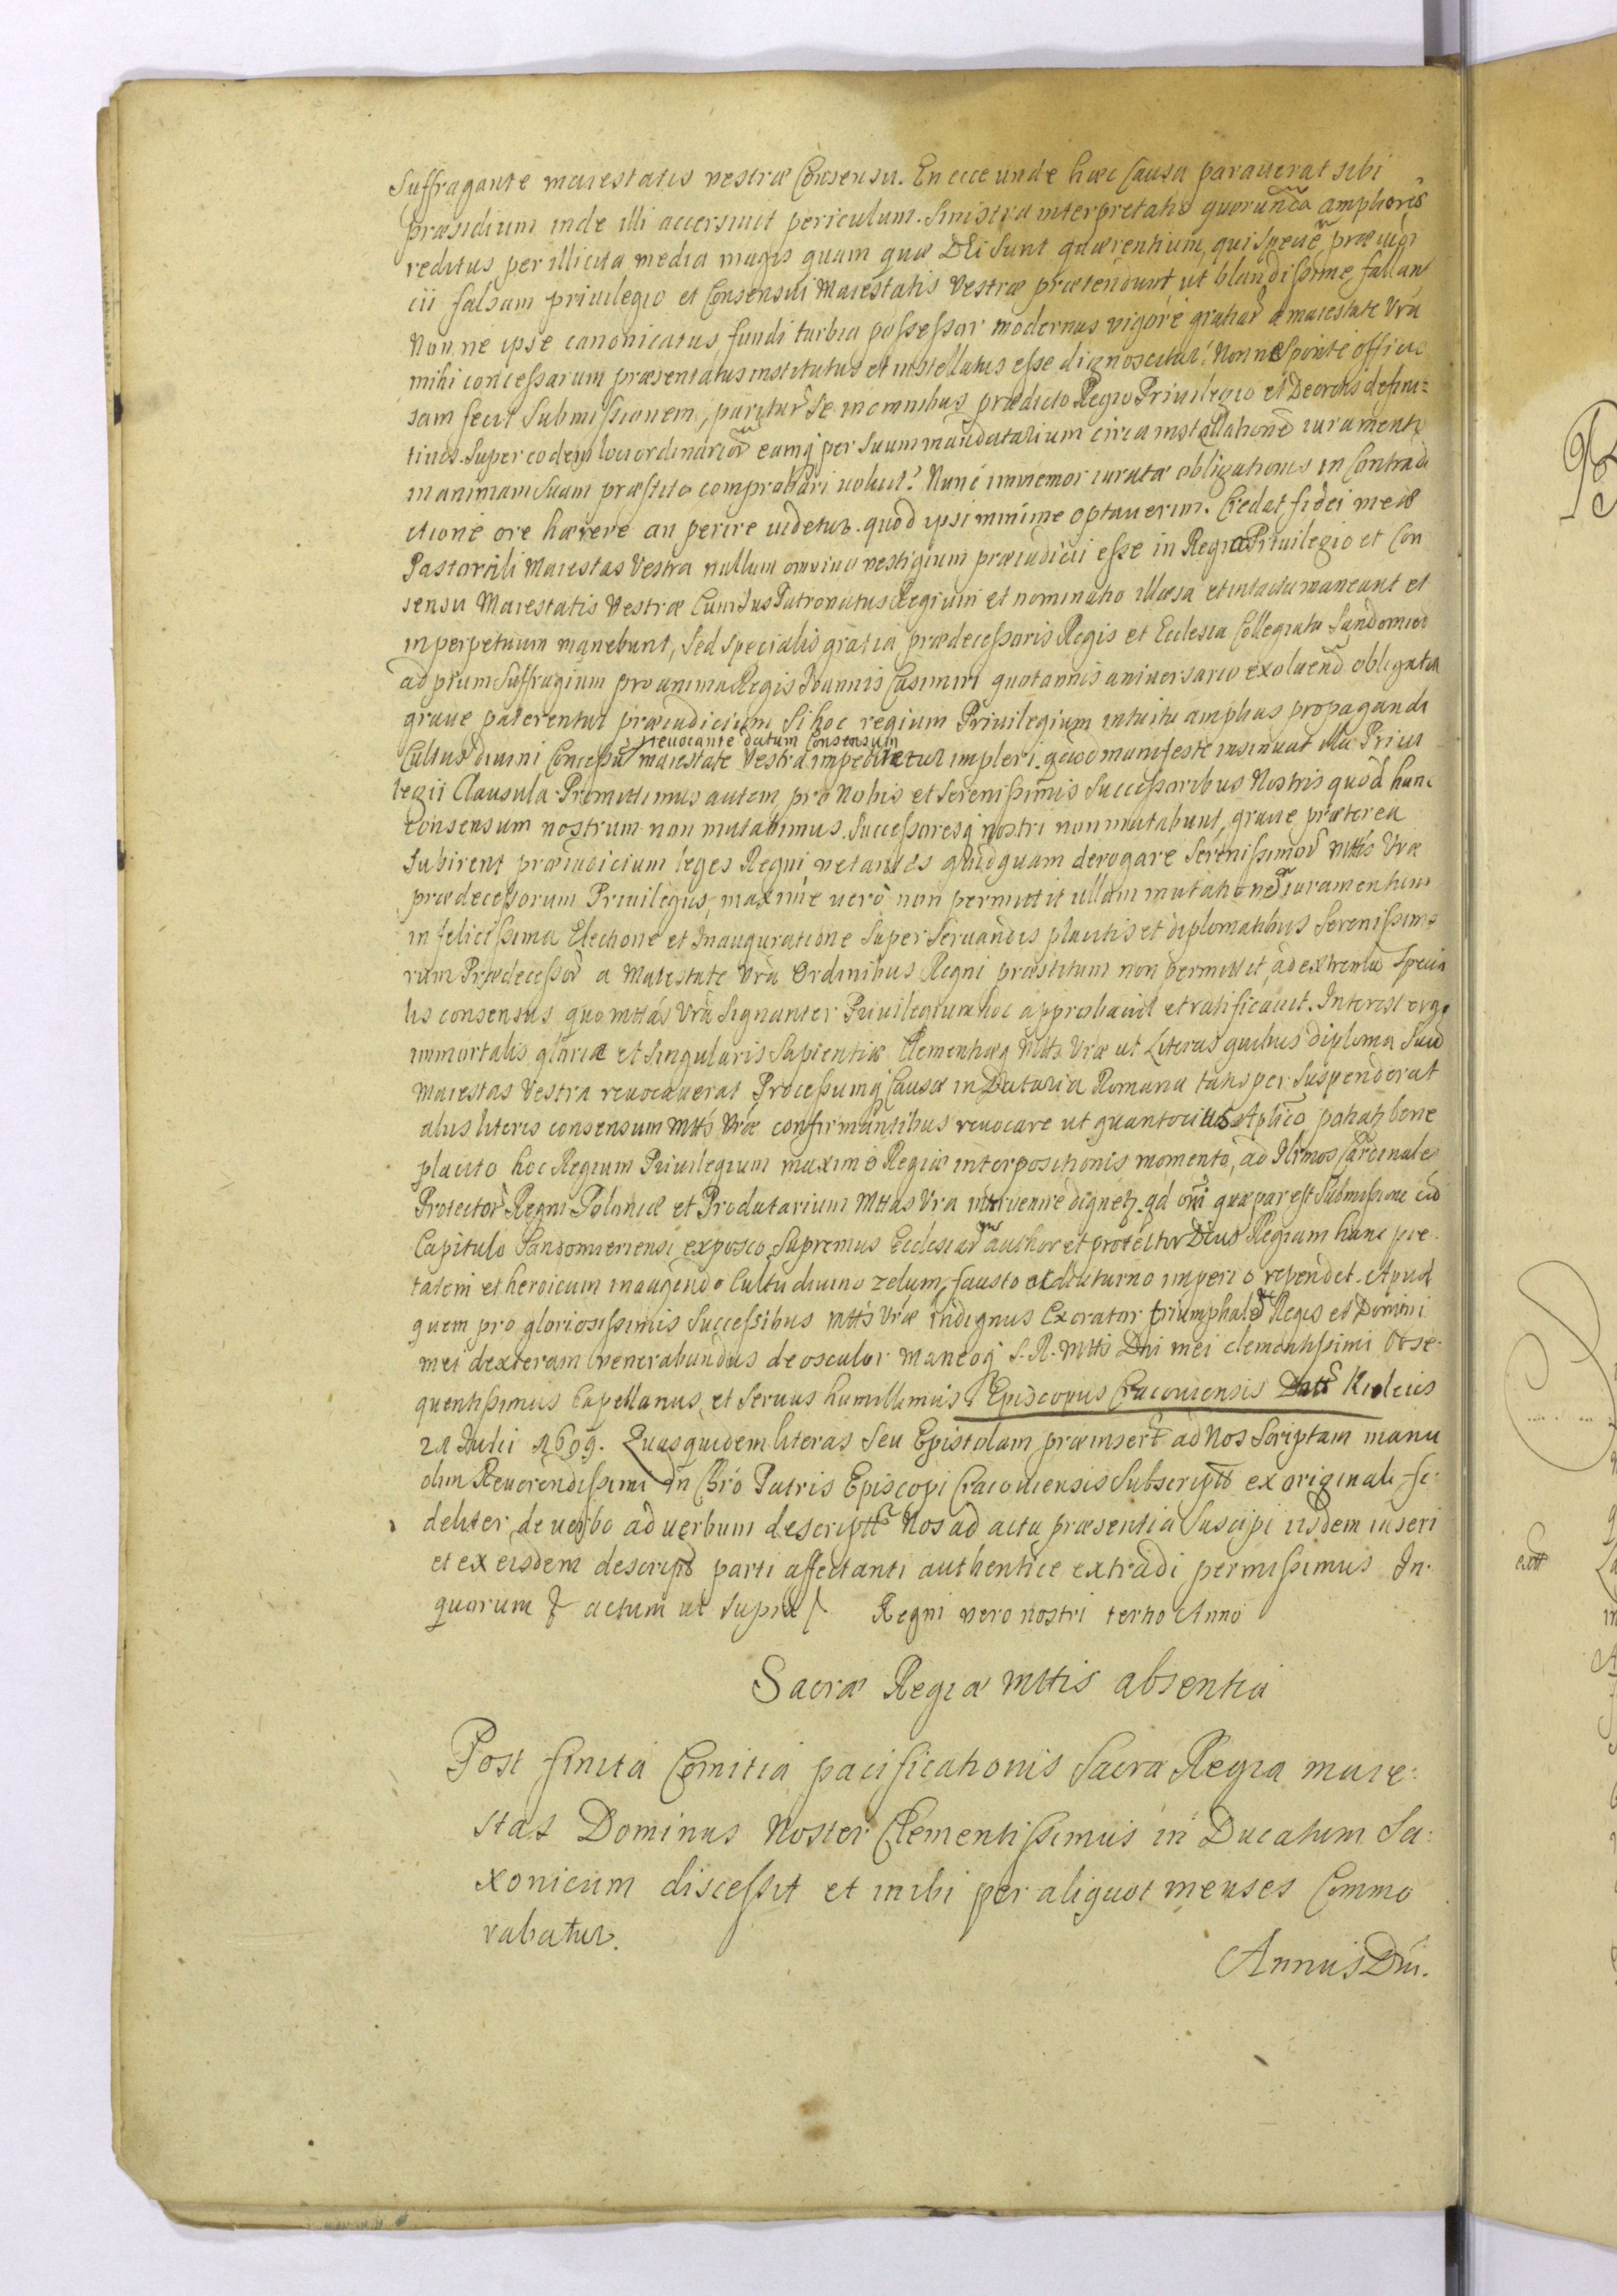 Suffragante maiestatis vestræ Consensu. En ecce unde hæc Causa parauerat sibi
præsidium inde illi accersiuit periculum. Sinistra interpretatio quorunda ampliores
reditus per illicita media magis quam quæ DEi sunt quærentium, qui specie præiudi
cii falsam priuilegio et Consensui Maiestatis Vestræ prætendunt ut blandissime fallant
Nonne ipse canonicatus fundi Turbia possessor modernus vigore gratiar a maiestate Vra
mihi concessarum præsentatus institutus et installatus esse dignoscitur? Nonne sponte officio
sam fecit Submissionem, pariturū se in omnibus prædicto Regio Priuilegio et Decretis defini=
tiuis. Super eodem loci ordinarior eamq per suum mandatarium circa installatione iuramento
in animam suam præstito comprobari uoluit? Nunc immemor iuratæ obligationis in Contradi
ctione ore hærere an perire uidetur. quod ipsi minime optauerim. Credat fidei meæ
Pastorali Maiestas Vestra nullum omnino vestigium præiudicii esse in Regio Priuilegio et Con
sensu Maiestatis Vestræ Cum Jus Patronatus Regium et nominatio illæsa et intacta maneant et
in perpetuum manebunt, sed specialis gratia prædecessoris Regis et Ecclesia Collegiata Sandomir
ad pium Suffragium pro anima Regis Joannis Casimiri quotannis aniuersario exoluend obligata
graue paterentur præiudicium si hoc regium Priuilegium intuitu amplius propagandi
revocante datum Consensum
Cultus diuini Concessu maiestate Vestra impediretur impleri. quod manifeste insinuat illa Priui
legii Clausula. Promittimus autem pro Nobis et Serenissimis Successoribus Nostris quod hunc
consensum nostrum non mutabimus. Successoresq nostri non mutabunt, graue præterea
Subirent præiudicium leges Regni vetantes quidquam derogare Serenissimor Mttis Vræ
prædecessorum Priuilegiis, maxime uero non permittit ullam mutatione iuramentum
in felicissima Electione et Inauguratione super Seruandis placitis et diplomatibus Serenissimo
rum Prædecessor a Maiestate Vra Ordinibus Regni præstitum non permittit, ad extremu specia
lis consensus quo mttas Vra Signanter Priuilegium hoc approbauit et ratificauit. Interest ergo
immortalis gloriæ et singularis Sapientiæ Clementiæq Mttis Vræ ut Literas quibus diploma suu
Maiestas Vestra reuocauerat Processumq Causæ in Dataria Romana tantisper suspenderat
aliis literis consensum Mttis Vræ confirmantibus reuocare ut quantocius Aplico patiatz bene
placito hoc Regium Priuilegium maxime Regiæ interpositionis momento, ad Illmos Cardinales
Protector Regni Poloniæ et Prodatarium Mttas Vra intervenire dignetz. qd oni qua par est submissione cu
Capitulo Sandomiriensi exposco, Supremus Ecclesiar author et protector Deus Regiam hanc pie
tatem et heroicum in augendo Cultu diuino zelum, fausto ac diuturno imperio rependet. Apud
quem pro gloriosissimis Successibus Mttis Vræ indignus Exorator triumphale Regis et Domini
mei dexteram venerabundus deosculor maneoq S. R. Mttis Dni mei clementissimi Obse-
quentissimus Capellanus et Seruus humillimus Episcopus Cracouiensis Datt Kielciis
21 Julii 1699. Quas quidem literas seu Epistolam præinsert ad Nos Scriptam manu
olim Reuerendissimi in Chro Patris Episcopi Cracouiensis Subscript ex originali fi-
deliter de uerbo ad uerbum descriptt Nos ad acta præsentia Suscipi iisdem inseri
et ex eisdem descript parti affectanti authentice extradi permissimus In
quorum & actum ut supra Regni vero nostri tertio Anno
Sacræ Regiæ Mttis absentia
Post finita Comitia pacificationis Sacra Regia maie-
stas Dominus Noster Clementissimus in Ducatum Sa-
xonicum discessit et inibi per aliquot menses Commo
rabatur.
Annus Dni.